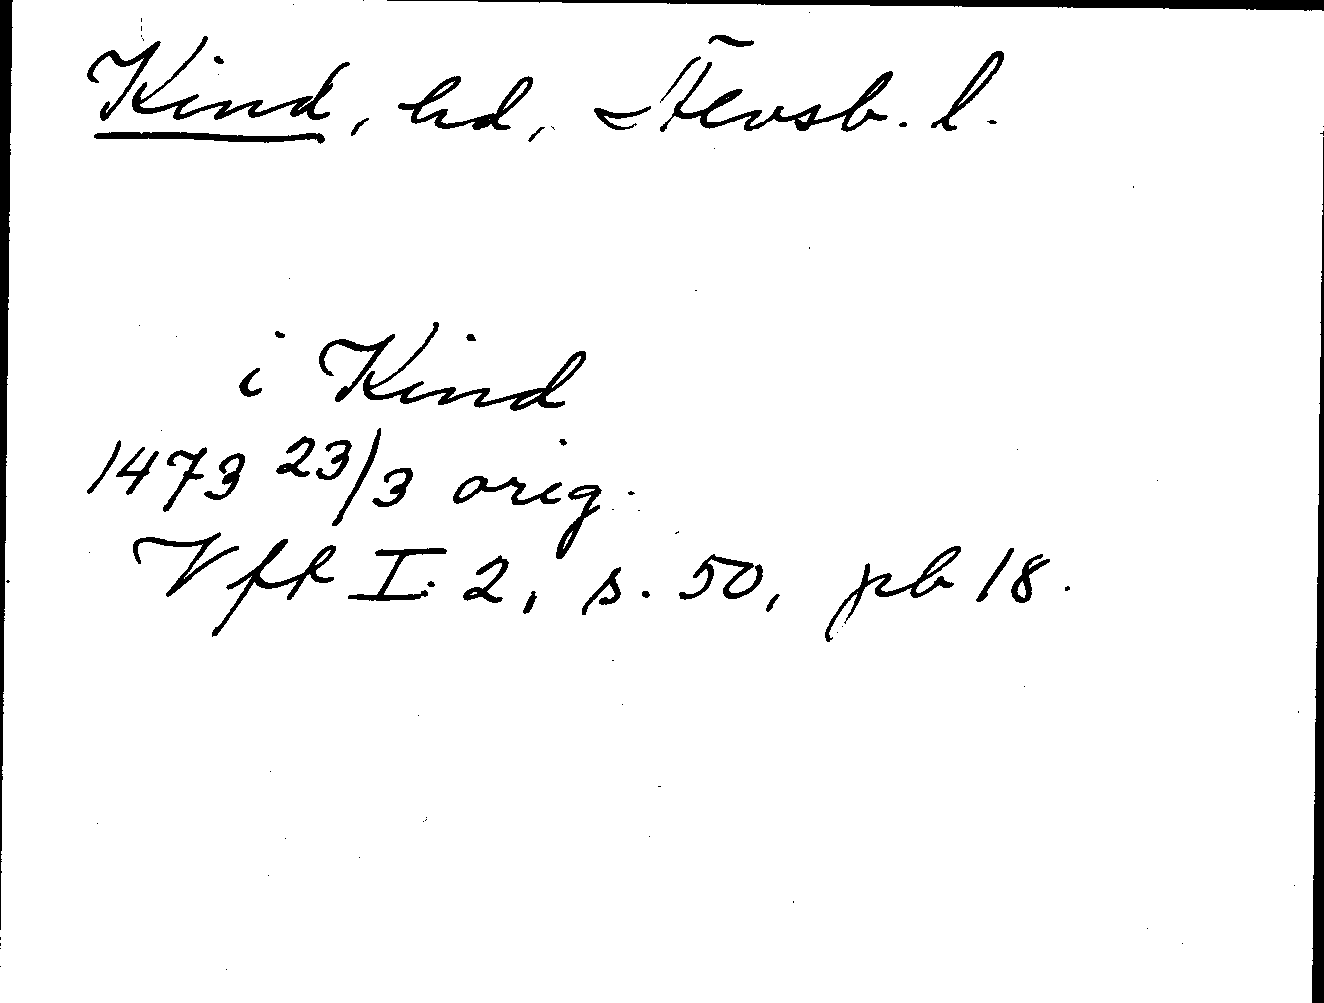 Kind, hd, Älvsb. l.
i Kind
1473 23/3 orig.
Vff I: 2, s. 50, pb 18.